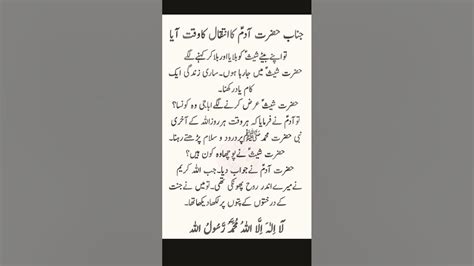 جناب حضرت آدمؑ کا انتقال کا وقت آیا
تو اپنے بیٹے شیثؑ کو بلایا اور بلا کر کہنے لگے
حضرت شیثؑ میں جا رہا ہوں۔ ساری زندگی ایک
کام یاد رکھنا۔
حضرت شیثؑ عرض کرنے لگے اباجی وہ کونسا؟
تو آدمؑ نے فرمایا کہ ہر وقت ہر روز اللہ کے آخری
نبی حضرت محمد ﷺ پر درود و سلام پڑھتے رہنا۔
حضرت شیثؑ نے پوچھا وہ کون ہیں؟
حضرت آدمؑ نے جواب دیا۔ جب اللہ کریم
نے میرے اندر روح پھونکی تھی۔ تو میں نے جنت
کے درختوں کے پتوں پر لکھا دیکھا تھا۔
لَآ اِلٰهَ اِلَّا اللهُ مُحَمَّدٌ رَّسُولُ الله